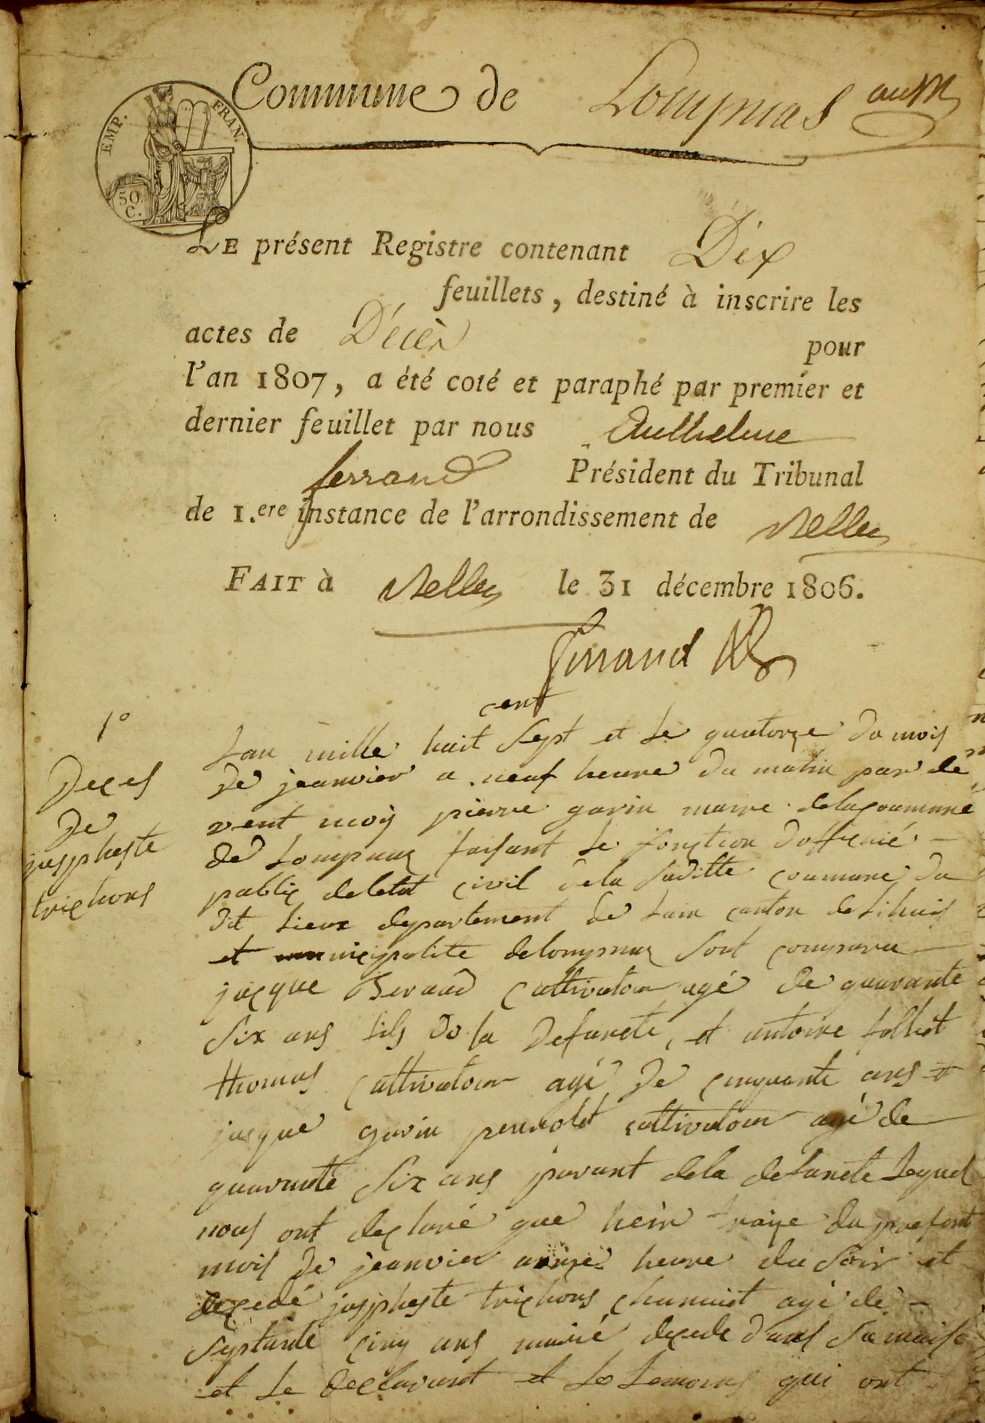 Commune de Lompnas
EMP. FRAN.
50 C.
LE présent Registre contenant Dix
feuillets, destiné à inscrire les
actes de Décès pour
l'an 1807, a été coté et paraphé par premier et
dernier feuillet par nous Anthelme
ferrand Président du Tribunal
de 1.ere instance de l'arrondissement de Belley
FAIT à Belley le 31 décembre 1806.
1°
Deces
de
trichons
cent
Lan mille huit Sept et le quatorze du mois
de jeanvier a neuf heure du matin par de
vent moy pierre gavin maire de la commune
de Lompnaz faisant le fonction dofficié
public de letat civil de la Suditte commune du
dit Lieux departement de Lain canton de Lhuis
et municipalite de lompnaz Sont comparu
jacque Beraud cultivateur agé de quarante
Six ans fils de la defuncte, et antoine
thomas cultivateur agé de cinquante ans et
jacque gavin cultivateur agé de
quarante Six ans parant de la defuncte Lequel
nous ont declaré que heir traize du present
mois de jeanvier onze heure du Soir et
decedé trichons agé de
Septante cinq ans marié decede dans Sa maison
et le declarant et le temoins qui ont